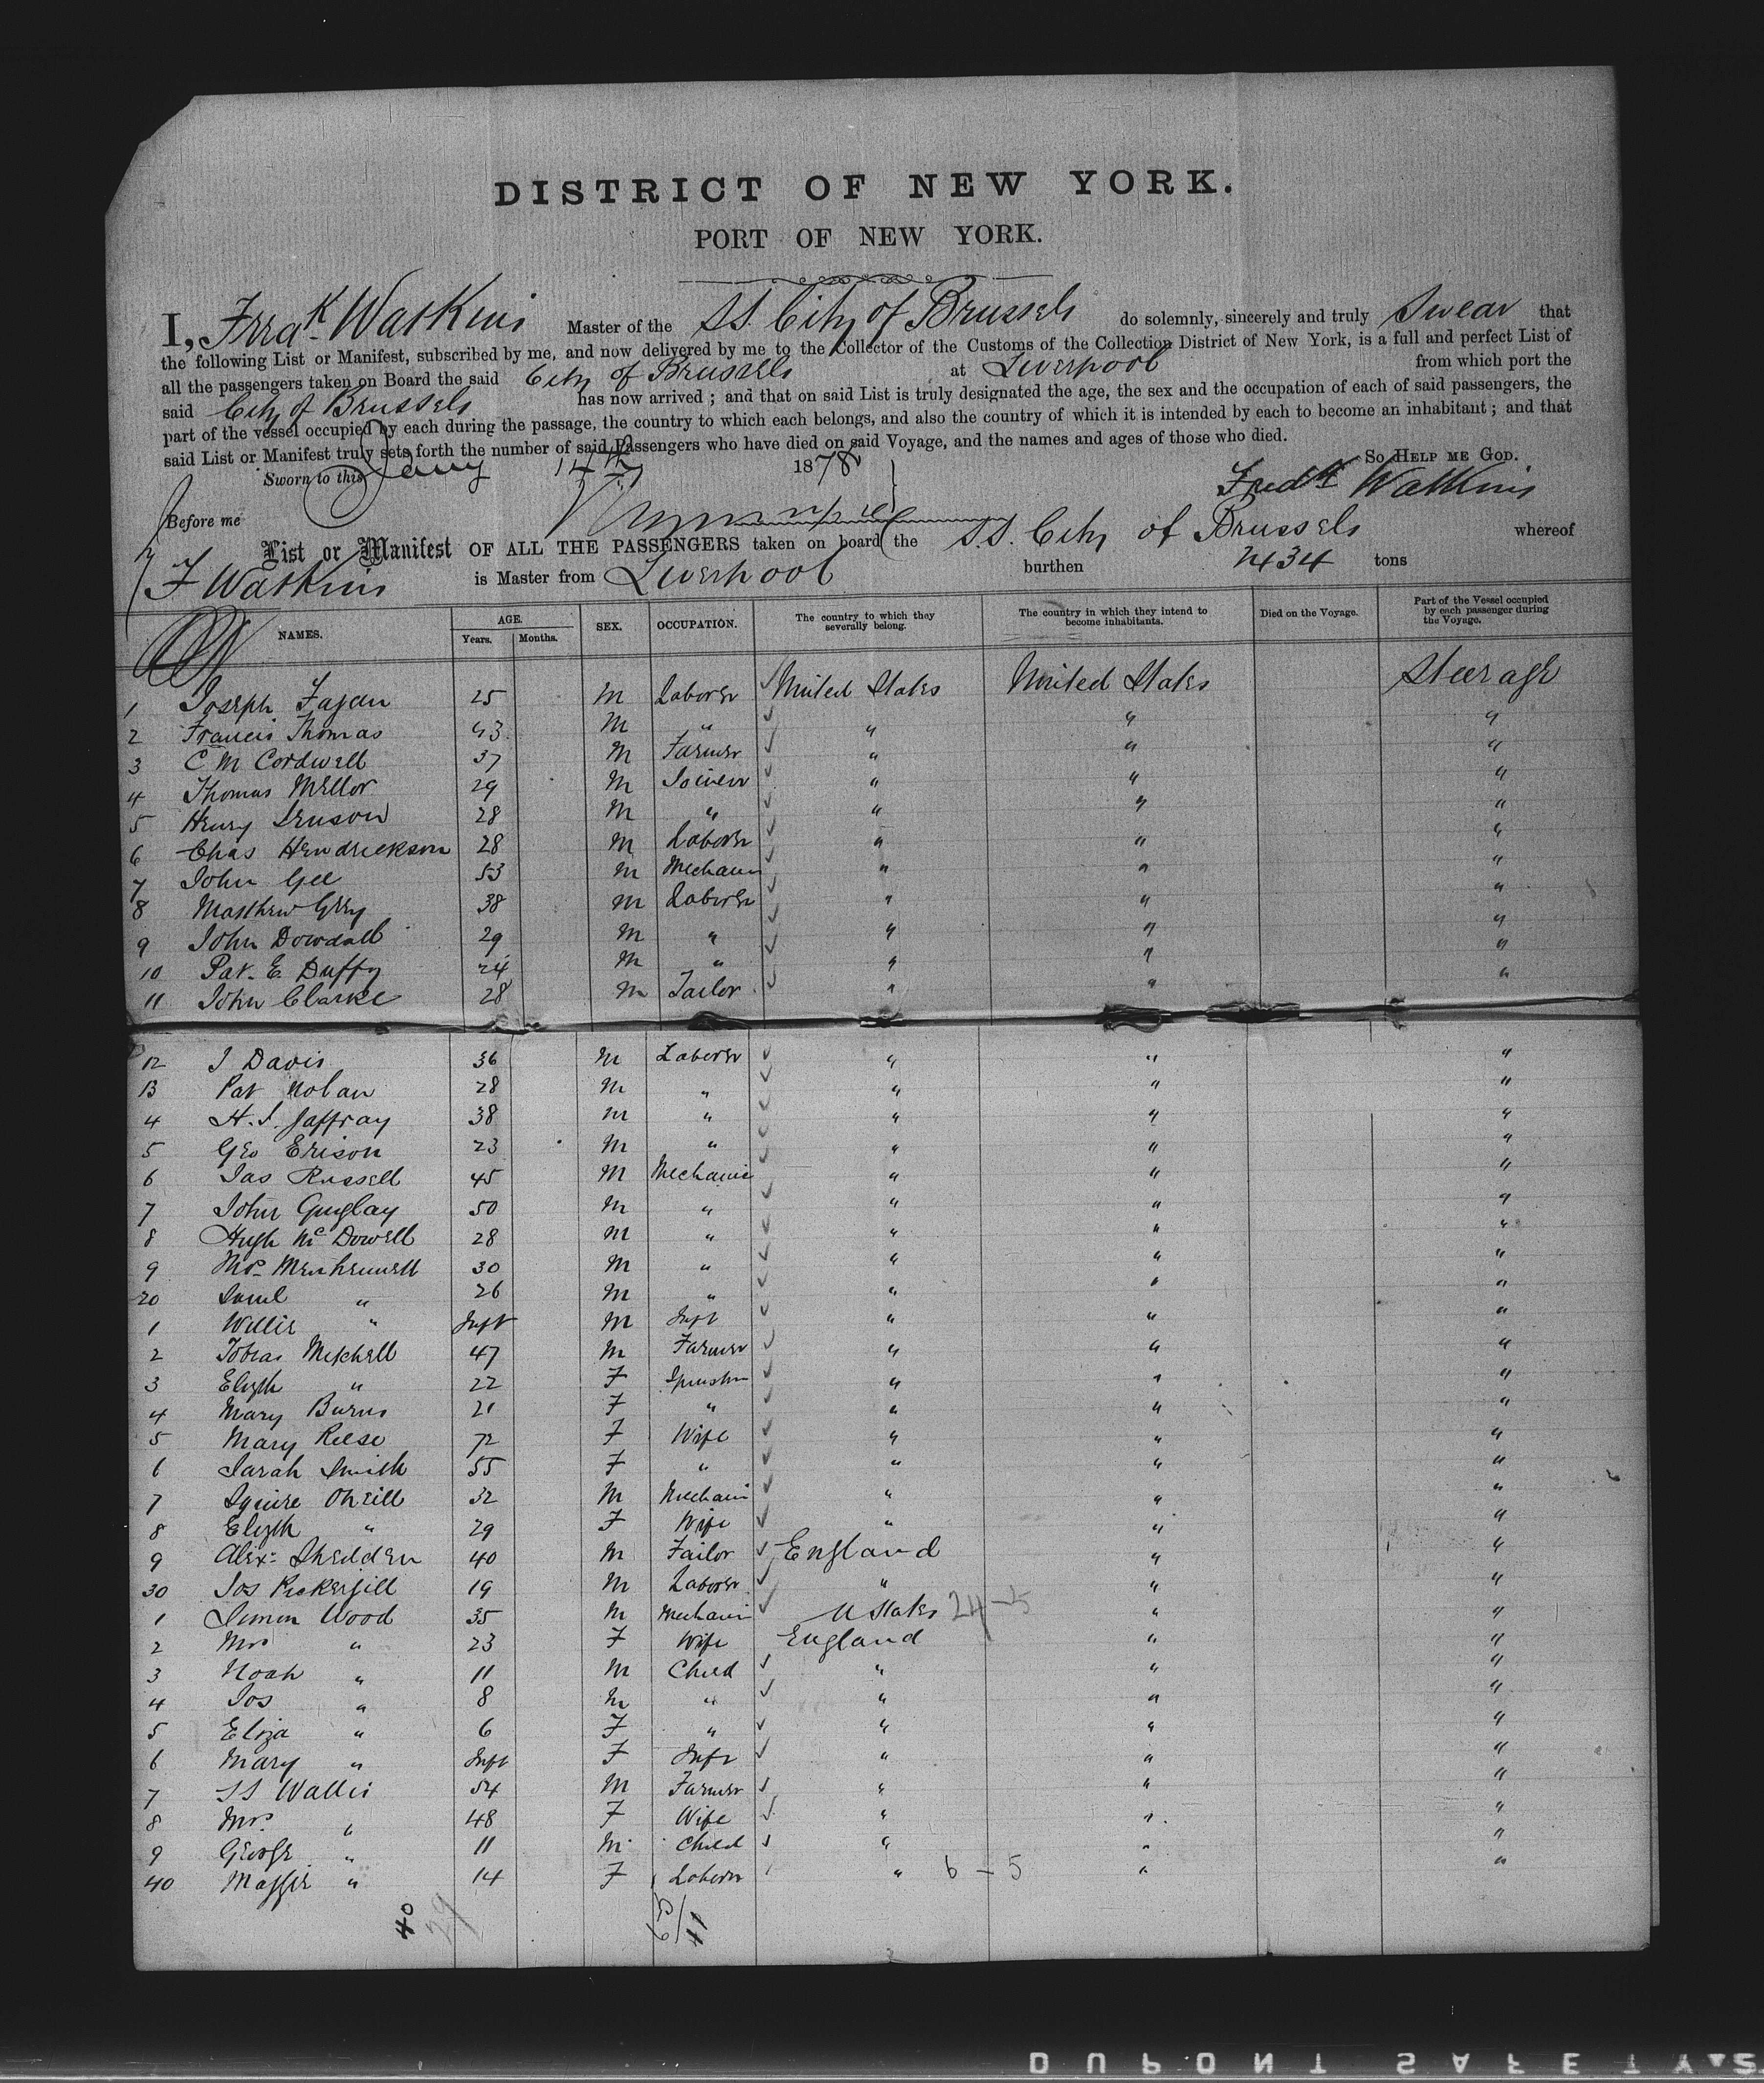 DISTRICT OF NEW YORK.
PORT OF NEW YORK.
I, Fredk Watkins Master of the S.S. City of Brussels do solemnly, sincerely and truly Swear that
the following List or Manifest, subscribed by me, and now delivered by me to the Collector of the Customs of the Collection District of New York, is a full and perfect List of
all the passengers taken on Board the said City of Brussels at Liverpool from which port the
said City of Brussels has now arrived ; and that on said List is truly designated the age, the sex and the occupation of each of said passengers, the
part of the vessel occupied by each during the passage, the country to which each belongs, and also the country of which it is intended by each to become an inhabitant ; and that
said List or Manifest truly sets forth the number of said Passengers who have died on said Voyage, and the names and ages of those who died.
So HELP ME GOD.
Sworn to this Jany 14th 1878
Fredk Watkins
Before me
List or Manifest OF ALL THE PASSENGERS taken on board the S.S. City of Brussels whereof
F Watkins is Master from Liverpool burthen 2434 tons
NAMES. AGE. Years. Months. SEX. OCCUPATION. The country to which they severally belong. The country in which they intend to become inhabitants. Died on the Voyage. Part of the Vessel occupied by each passenger during the Voyage.
1 Joseph Fagan 25 M Laborer United States United States Steerage
2 Francis Thomas 43 M " " " "
3 C M Cordwell 37 M Farmer " " "
4 Thomas Mellor 29 M Joiner " " "
5 Henry 28 M " " " "
6 Chas Hendrickson 28 M Laborer " " "
7 John Gee 53 M Mechanic " " "
8 Matthew Grey 38 M Laborer " " "
9 John Dowdall 29 M " " " "
10 Pat. E Duffy 24 M " " " "
11 John Clarke 28 M Tailor " " "
12 J Davis 36 M Laborer " " "
13 Pat Nolan 28 M " " " "
4 H. S. Jaffray 38 M " " " "
5 Geo Erison 23 M " " " "
6 Jas Russell 45 M Mechanic " " "
7 John Quglay 50 M " " " "
8 Hugh Mc Dowell 28 M " " " "
9 30 M " " " "
20 Saml " 26 M " " " "
1 Willie " Inft M Inft " " "
2 Tobias Mitchell 47 M Farmer " " "
3 Elizth " 22 F Spinster " " "
4 Mary Burns 21 F " " " "
5 Mary Reese 72 F Wife " " "
6 Sarah Smith 55 F " " " "
7 Squire ONeill 32 M Mechani " " "
8 Elizth " 29 F Wife " " "
9 Alex: Shedden 40 M Tailor England " "
30 Jos Pickersgill 19 M Laborer " " "
1 Simon Wood 35 M Mechani U States 24-5 " "
2 Mrs " 23 F Wife England " "
3 Noah " 11 M Child " " "
4 Jos " 8 M " " " "
5 Eliza " 6 F " " " "
6 Mary " Inft F Inft " " "
7 S S Wallis 54 M Farmer " " "
8 Mrs " 48 F Wife " " "
9 George " 11 M Child " " "
40 Maggie " 14 F Laborer " 6 - 5 " "
40 29
DUPONT SAFETY